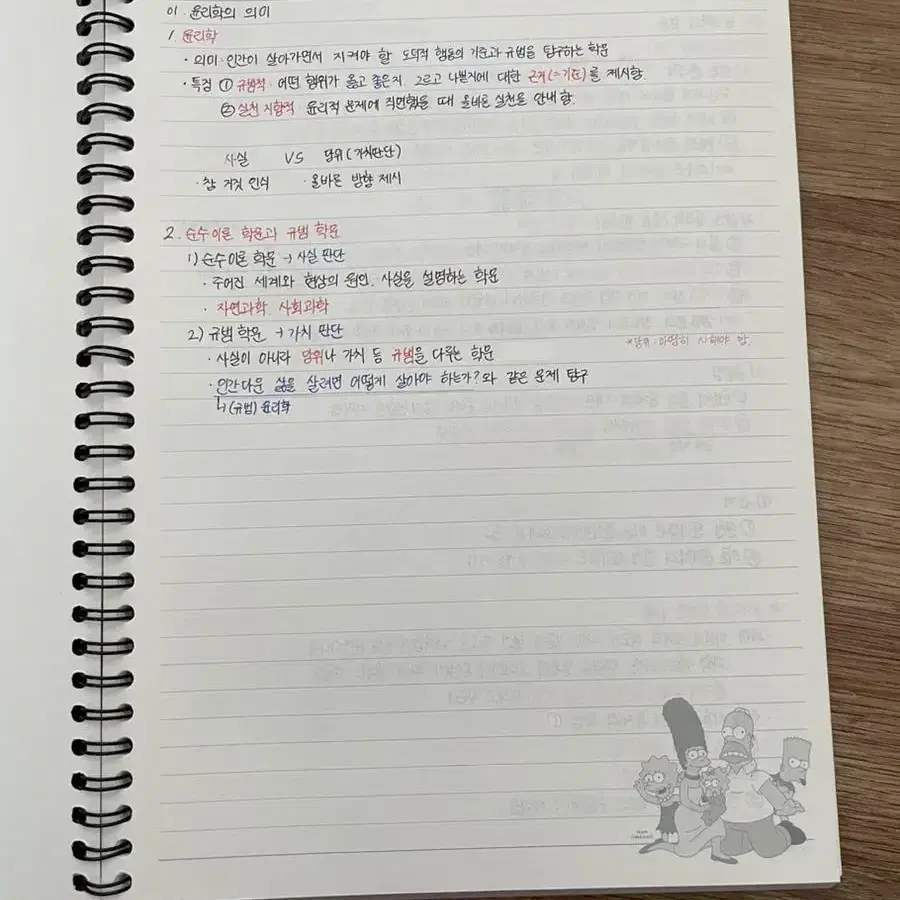 01. 윤리학의 의미
1. 윤리학
· 의미: 인간이 살아가면서 지켜야 할 도덕적 행동의 기준과 규범을 탐구하는 학문
· 특징 ① 규범적: 어떤 행위가 옳고 좋은지 그르고 나쁠지에 대한 근거(=기준)를 제시함.
② 실천 지향적: 윤리적 문제에 직면했을 때 올바른 실천을 안내함.
사실 VS 당위(가치판단)
· 참 거짓 인식 · 올바른 방향 제시
2. 순수이론 학문과 규범 학문
1) 순수이론 학문 → 사실 판단
· 주어진 세계와 현상의 원인, 사실을 설명하는 학문
· 자연과학, 사회과학
2) 규범 학문 → 가치 판단
*당위: 마땅히 해야 함
· 사실이 아니라 당위나 가치 등 규범을 다루는 학문
· 인간다운 삶을 살려면 어떻게 살아야 하는가?와 같은 문제 탐구
↳ (규범) 윤리학